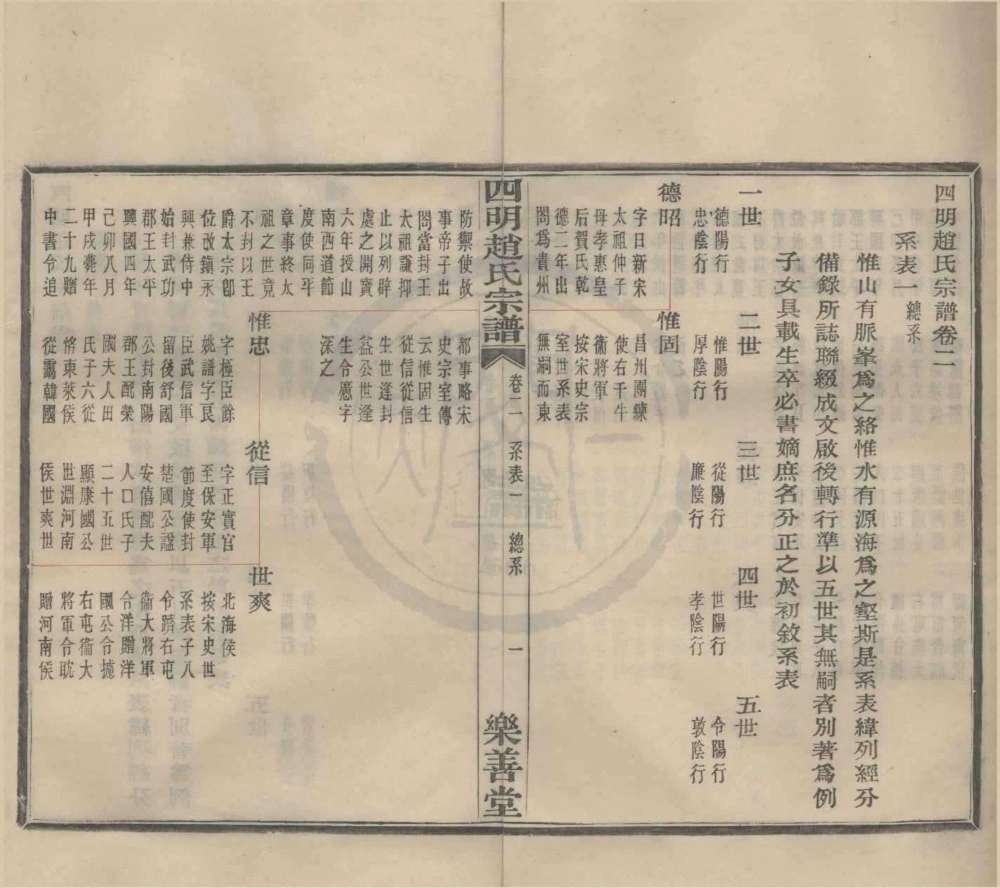 四明趙氏宗譜卷二
系表一 總系
惟山有脈峯爲之絡惟水有源海爲之壑斯是系表緯列經分
備錄所誌聯綴成文啟後轉行準以五世其無嗣者別著爲例
子女具載生卒必書嫡庶名分正之於初敘系表
一世 二世 三世 四世 五世
德陽行 惟陽行 從陽行 世陽行 令陽行
忠陰行 厚陰行 廉陰行 孝陰行 敦陰行
德昭 惟固
字日新宋 昌州團練
太祖仲子 使右千牛
母孝惠皇 衞將軍
后賀氏乾 按宋史宗
德二年出 室世系表
閤爲貴州 無嗣而東
四明趙氏宗譜 卷二 系表一 總系 一 樂善堂
防禦使故 都事略宋
事帝子出 史宗室傳
閤當封王 云惟固生
太祖謙抑 從信從信
止以列辟 生世逢封
處之開寶 益公世逢
六年授山 生令憑字
南西道節 深之
度使同平
章事終太
祖之世竟
不封以王 惟忠 從信 世爽
爵太宗卽 字極臣餘 字正實官 北海侯
位改鎮永 姚譜字艮 至保安軍 按宋史世
興兼侍中 臣武信軍 節度使封 系表子八
始封武功 留後舒國 楚國公諡 令躋右屯
郡王太平 公封南陽 安僖配夫 衞大將軍
興國四年 郡王配榮 人口氏子 令洋贈洋
己卯八月 國夫人田 二十五世 國公令摅
甲戌薨年 氏子六從 顯康國公 右屯衞大
二十九贈 恪東萊侯 世淵河南 將軍令耽
中書令追 從藹韓國 侯世爽世 贈河南侯